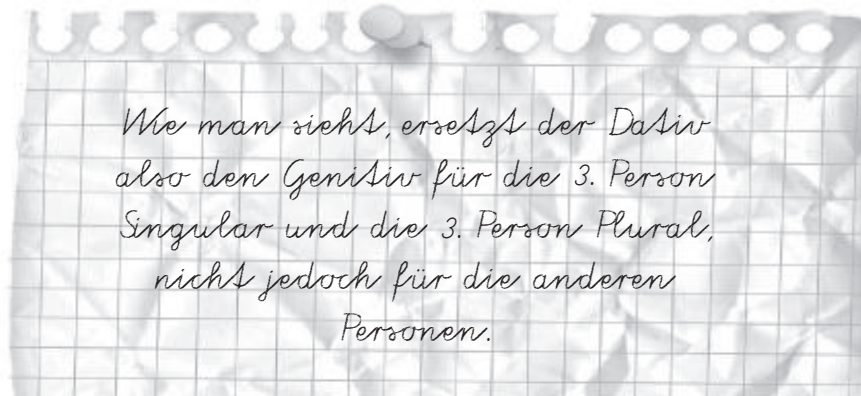 Wie man sieht, ersetzt der Dativ
also den Genitiv für die 3. Person
Singular und die 3. Person Plural,
nicht jedoch für die anderen
Personen.